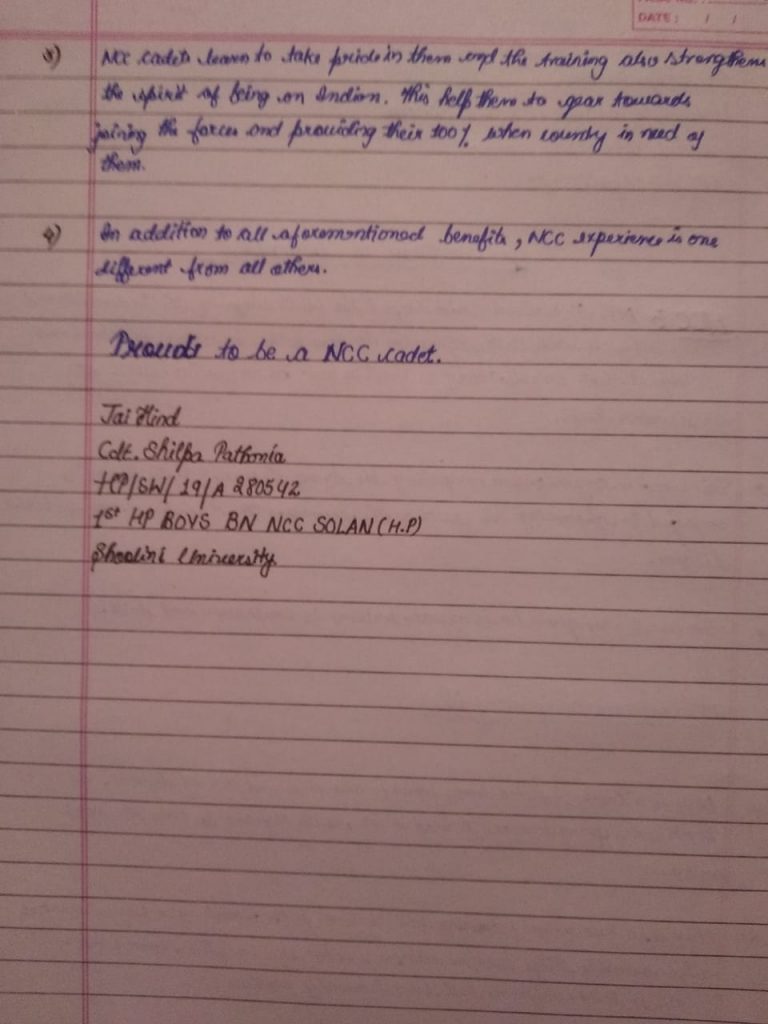 DATE: / /
3) NCC cadets learn to take pride in them and the training also strengthens
the spirit of being an Indian. This help them to gear towards
joining the forces and providing their 100% when country in need of
them.
4) In addition to all aforementioned benefits, NCC experience is one
different from all others.
Prouds to be a NCC cadet.
Jai Hind
Cdt. Shilpa Pathania
HP/SW/19/A 280542
1st HP BOYS BN NCC SOLAN (H.P)
Shoolini University